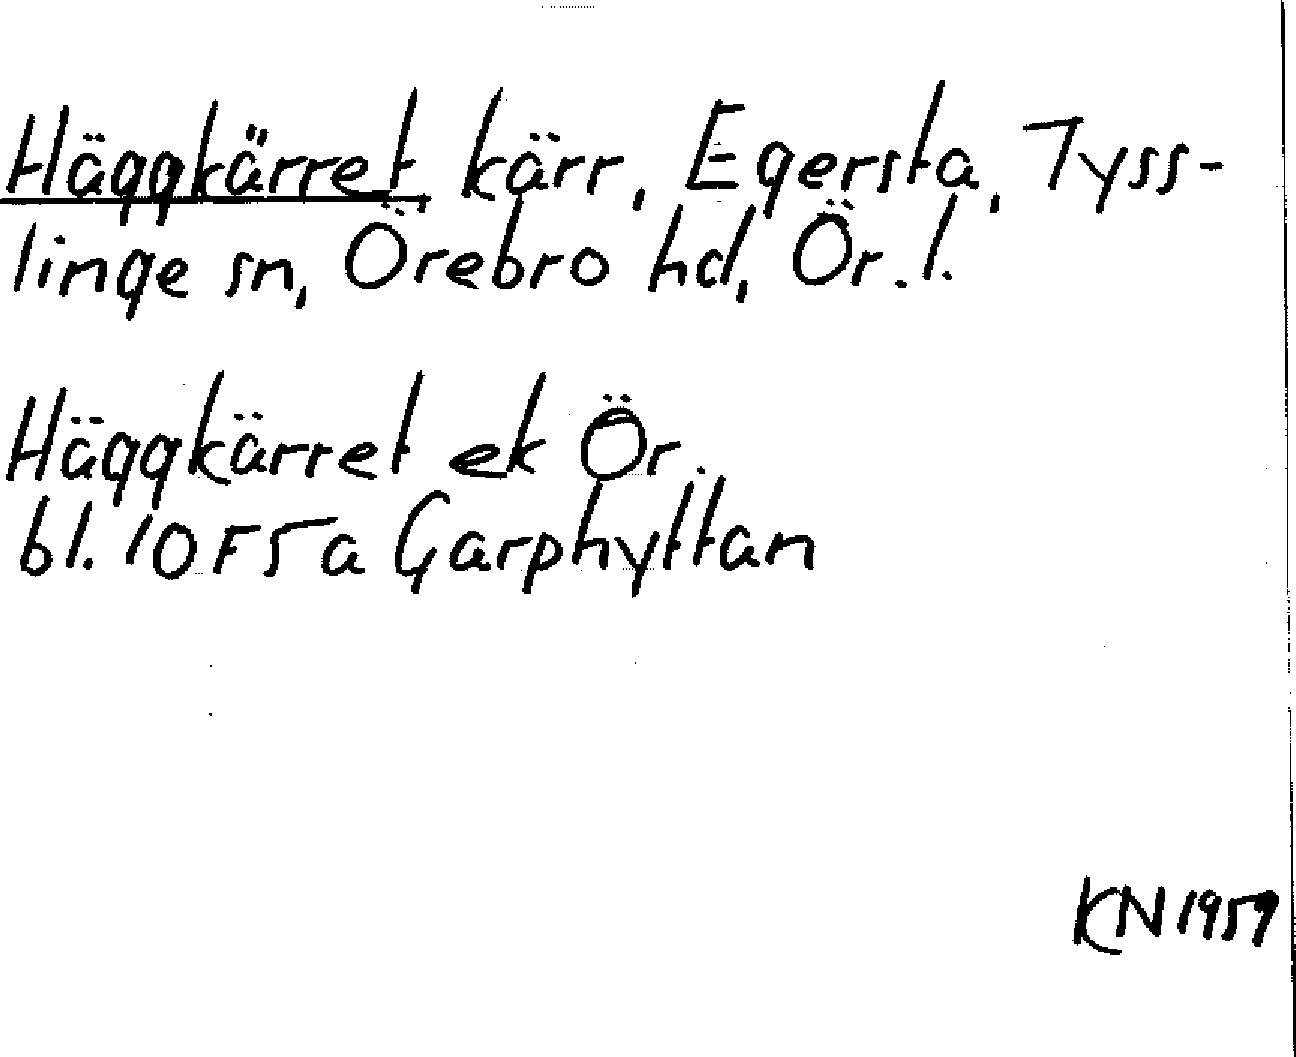 Häggkärret, kärr, Egersta, Tyss-
linge sn, Örebro hd, Ör. l.
Häggkärret ek Ör.
bl. 10F5a Garphyttan
KN 1957